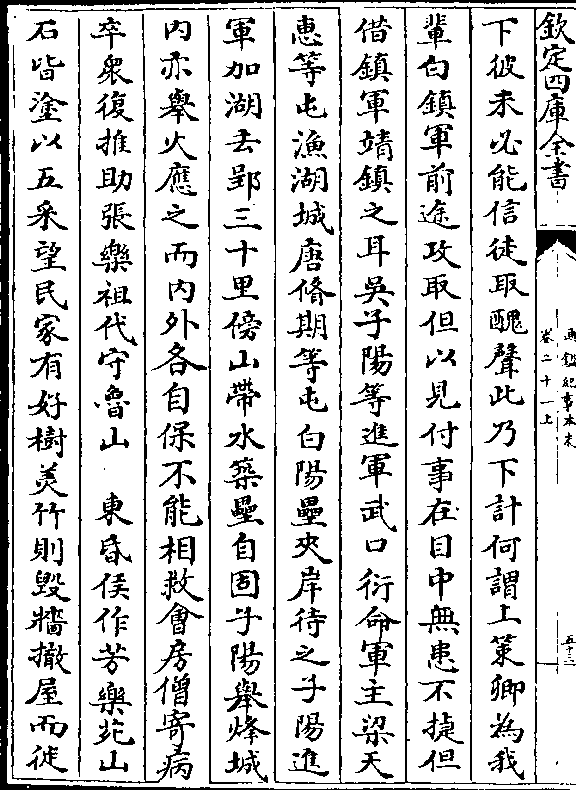 欽定四庫全書
通鑑紀事本末
卷二十一上
五十三
下彼未必能信徒取醜聲此乃下計何謂上策卿為我
輩白鎮軍前途攻取但以見付事在目中無患不捷但
借鎮軍靖鎮之耳吳子陽等進軍武口衍命軍主梁天
惠等屯漁湖城唐脩期等屯白陽壘夾岸待之子陽進
軍加湖去郢三十里傍山帶水築壘自固子陽舉烽城
內亦舉火應之而內外各自保不能相救會房僧寄病
卒衆復推助張樂祖代守魯山 東昏侯作芳樂苑山
石皆塗以五采望民家有好樹美竹則毀牆撤屋而徙